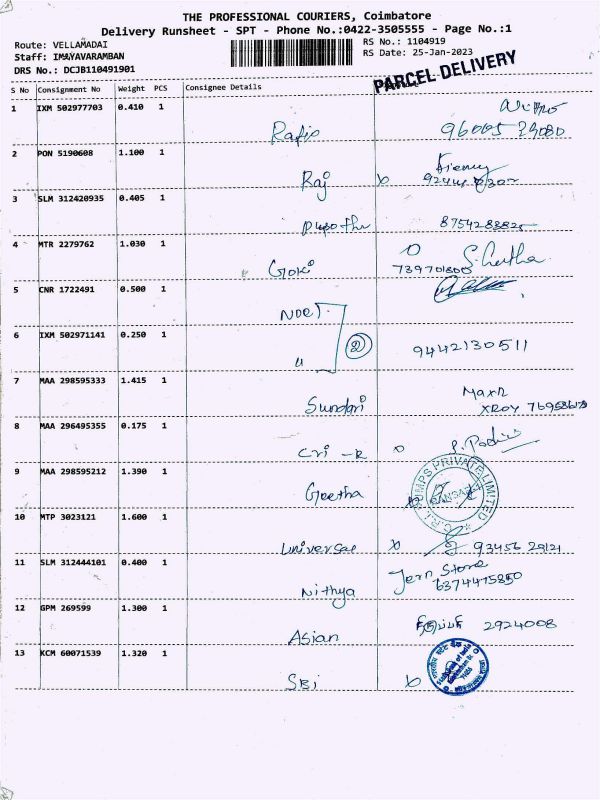 THE PROFESSIONAL COURIERS, Coimbatore
Delivery Runsheet - SPT - Phone No.:0422-3505555 - Page No.:1
Route: VELLAMADAI RS No.: 1104919
Staff: IMAYAVARAMBAN RS Date: 25-Jan-2023
DRS No.: DCJB110491901
PARCEL DELIVERY
S No Consignment No Weight PCS Consignee Details
1 IXM 502977703 0.410 1
Rafio
2 PON 5190608 1.100 1
Raj
3 SLM 312420935 0.405 1
8754288825
4 MTR 2279762 1.030 1
Goki
739701800
5 CNR 1722491 0.500 1
6 IXM 502971141 0.250 1
2 9442130511
7 MAA 298595333 1.415 1
Sundari
8 MAA 296495355 0.175 1
Cri - R
9 MAA 298595212 1.390 1
Geetha
PUMPS PRIVATE LIMITED
C.R.I.
10 MTP 3023121 1.600 1
Universal 93456 29121
11 SLM 312444101 0.400 1
Nithya Jern Store
6374415850
12 GPM 269599 1.300 1
Asian 2924008
13 KCM 60071539 1.320 1
SBi